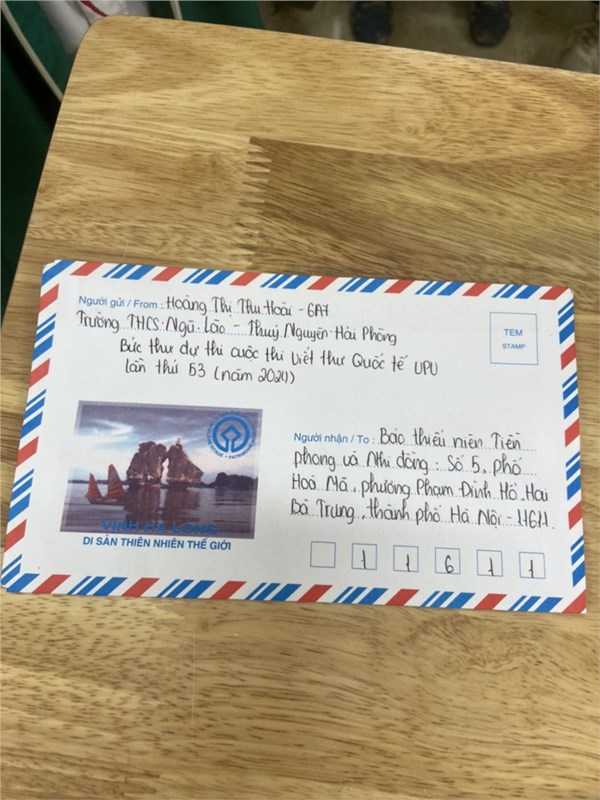 Người gửi / From : Hoàng Thị Thu Hoài - 6A7
Trường THCS Ngũ Lão - Thuỷ Nguyên - Hải Phòng
Bức thư dự thi cuộc thi viết thư Quốc tế UPU
lần thứ 53 (năm 2024)
TEM
STAMP
VỊNH HẠ LONG
DI SẢN THIÊN NHIÊN THẾ GIỚI
Người nhận / To : Báo thiếu niên Tiền
phong và Nhi đồng : Số 5, phố
Hoà Mã, phường Phạm Đình Hổ, Hai
Bà Trưng, thành phố Hà Nội -
1 1 6 1 1